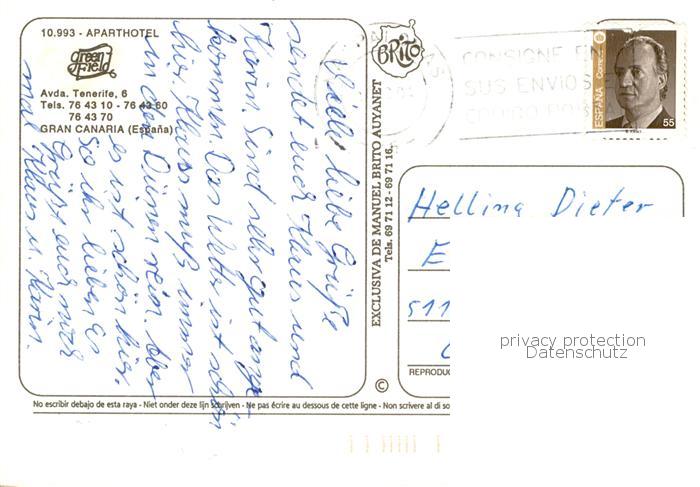 10.993 - APARTHOTEL
green Field
Avda. Tenerife, 6
Tels. 76 43 10 - 76 43 60
76 43 70
GRAN CANARIA (España)
Viele liebe Grüße
sendet euch Klaus und
Karin. Sind sehr gut ange-
kommen. Das Wetter ist schön
hier. Klaus muß immer
in den Dünen sein. Aber
es ist schön hier.
So ihr lieben Es
Grüßt euch noch
mal Klaus u. Karin.
BRITO
EXCLUSIVA DE MANUEL BRITO AUYANET
Tels. 69 71 12 - 69 71 16
CONSIGNE EN
SUS ENVIOS
CODIGO POSTAL
ESPAÑA Correos
55
Hellina Dieter
E
511
©
REPRODUC
privacy protection
Datenschutz
No escribir debajo de esta raya - Niet onder deze lijn schrijven - Ne pas écrire au dessous de cette ligne - Non scrivere al di so